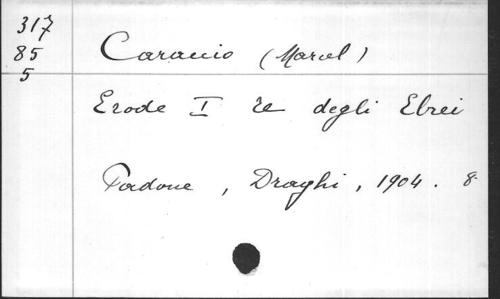 317
85
5
Caraccio (Marcel)
Erode I re degli Ebrei
Padoue, Draghi, 1904. 8